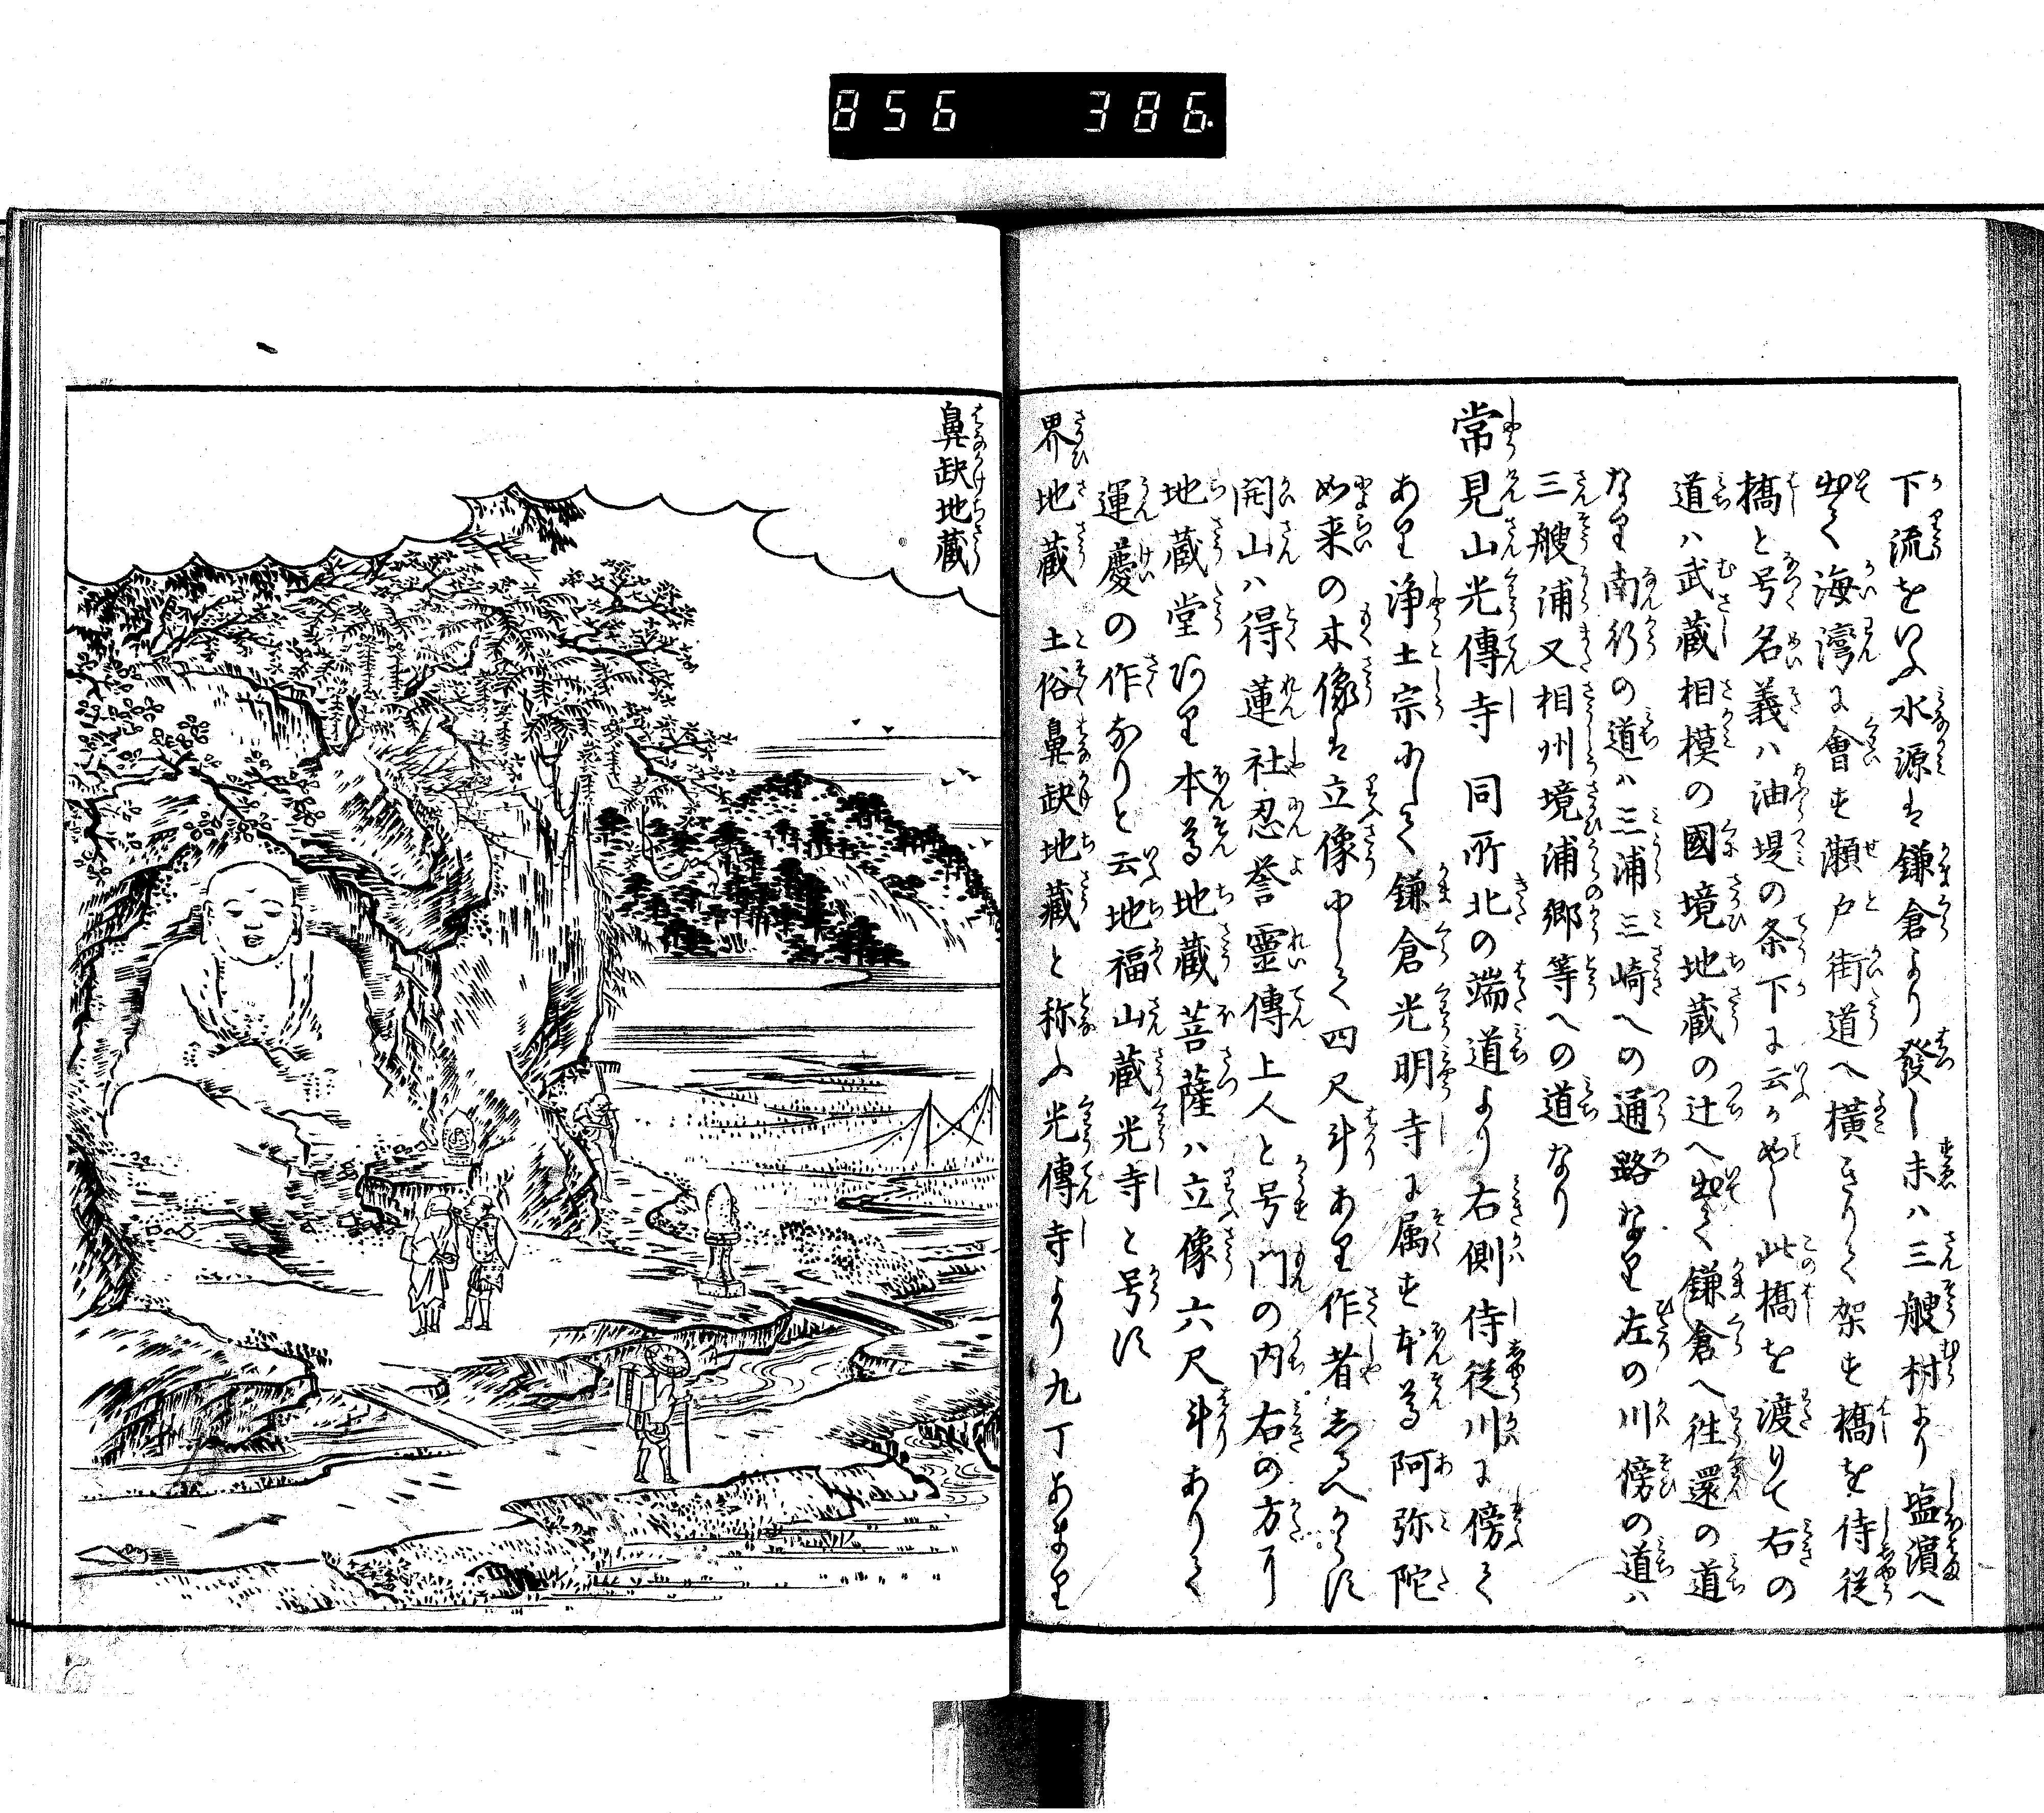 856 386
下流をいふ水源は鎌倉より發し末ハ三艘村より塩濱へ
出て海湾に會す瀬戸街道へ横きりて架す橋を侍従
橋と号名義ハ油堤の条下に云か如し此橋を渡りて右の
道ハ武蔵相模の國境地蔵の辻へ出て鎌倉へ往還の道
なり南行の道ハ三浦三崎への通路なり左の川傍の道ハ
三艘浦又相州境浦郷等への道なり
常見山光傳寺 同所北の端道より右側侍従川に傍て
あり浄土宗にして鎌倉光明寺に属す本尊阿弥陀
如来の木像は立像にして四尺斗あり作者しるへからす
開山ハ得蓮社忍誉靈傳上人と号門の内右の方に
地蔵堂あり本尊地蔵菩薩ハ立像六尺斗ありて
運慶の作なりと云地福山蔵光寺と号す
界地蔵 土俗鼻缺地蔵と称ふ光傳寺より九丁あまり
鼻缺地蔵
はなかけちさう